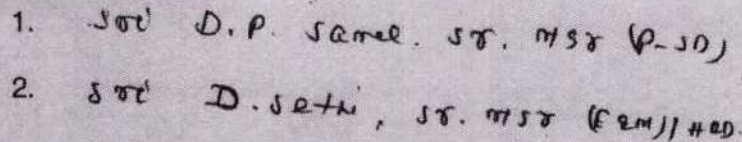 1. Sri D.P. Samel. Sr. Mgr (P-SD)
2. Sri D. Sethi, Sr. Mgr (E&M)/HOD.